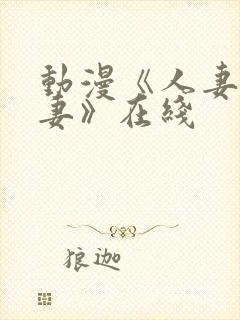 動漫《人妻
妻》在綫
狼迦